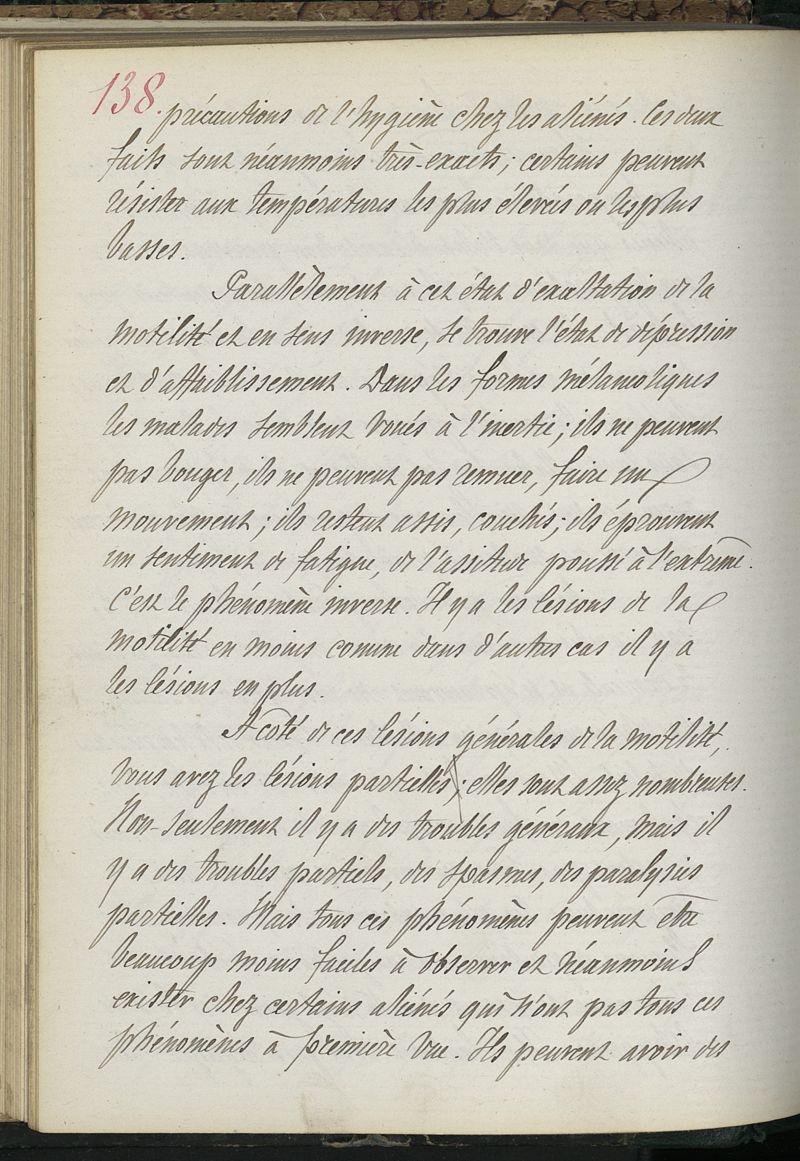 138.
précautions de l'hygiène chez les aliénés. Ces deux
faits sont néanmoins très-exacts; certains peuvent
résister aux températures les plus élevées ou les plus
basses.
Parallèlement à cet état d'exaltation de la
motilité et en sens inverse, se trouve l'état de dépression
et d'affaiblissement. Dans les formes mélancoliques
les malades semblent voués à l'inertie; ils ne peuvent
pas bouger, ils ne peuvent pas remuer, faire un
mouvement; ils restent assis, couchés; ils éprouvent
un sentiment de fatigue, de lassitude poussé à l'extrême.
C'est le phénomène inverse. Il y a les lésions de la
motilité en moins comme dans d'autres cas il y a
les lésions en plus.
A côté de ces lésions générales de la motilité,
vous avez les lésions partielles; elles sont assez nombreuses.
Non-seulement il y a des troubles généraux, mais il
y a des troubles partiels, des spasmes, des paralysies
partielles. Mais tous ces phénomènes peuvent être
beaucoup moins faciles à observer et néanmoins
exister chez certains aliénés qui n'ont pas tous ces
phénomènes à première vue. Ils peuvent avoir des